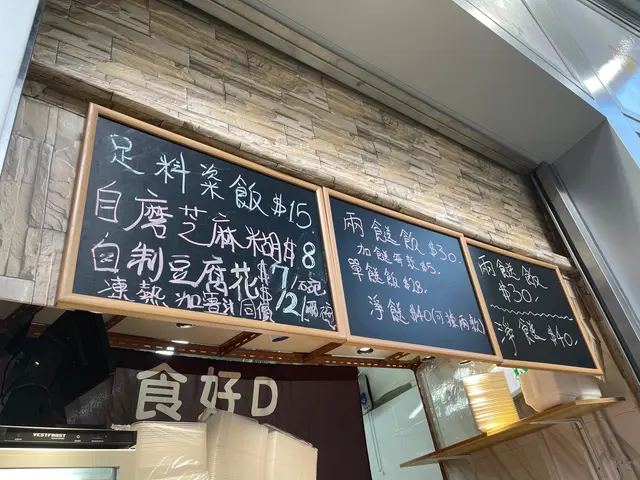 足料菜飯$15
自磨芝麻糊$8
自制豆腐花$7/
凍熱 同價 $12/
兩餸飯$30.
加餸每款$5.
單餸飯$28.
淨餸$40(可揀兩款)
兩餸飯
$30.-
淨餸$40.-
食好D
VESTFROST